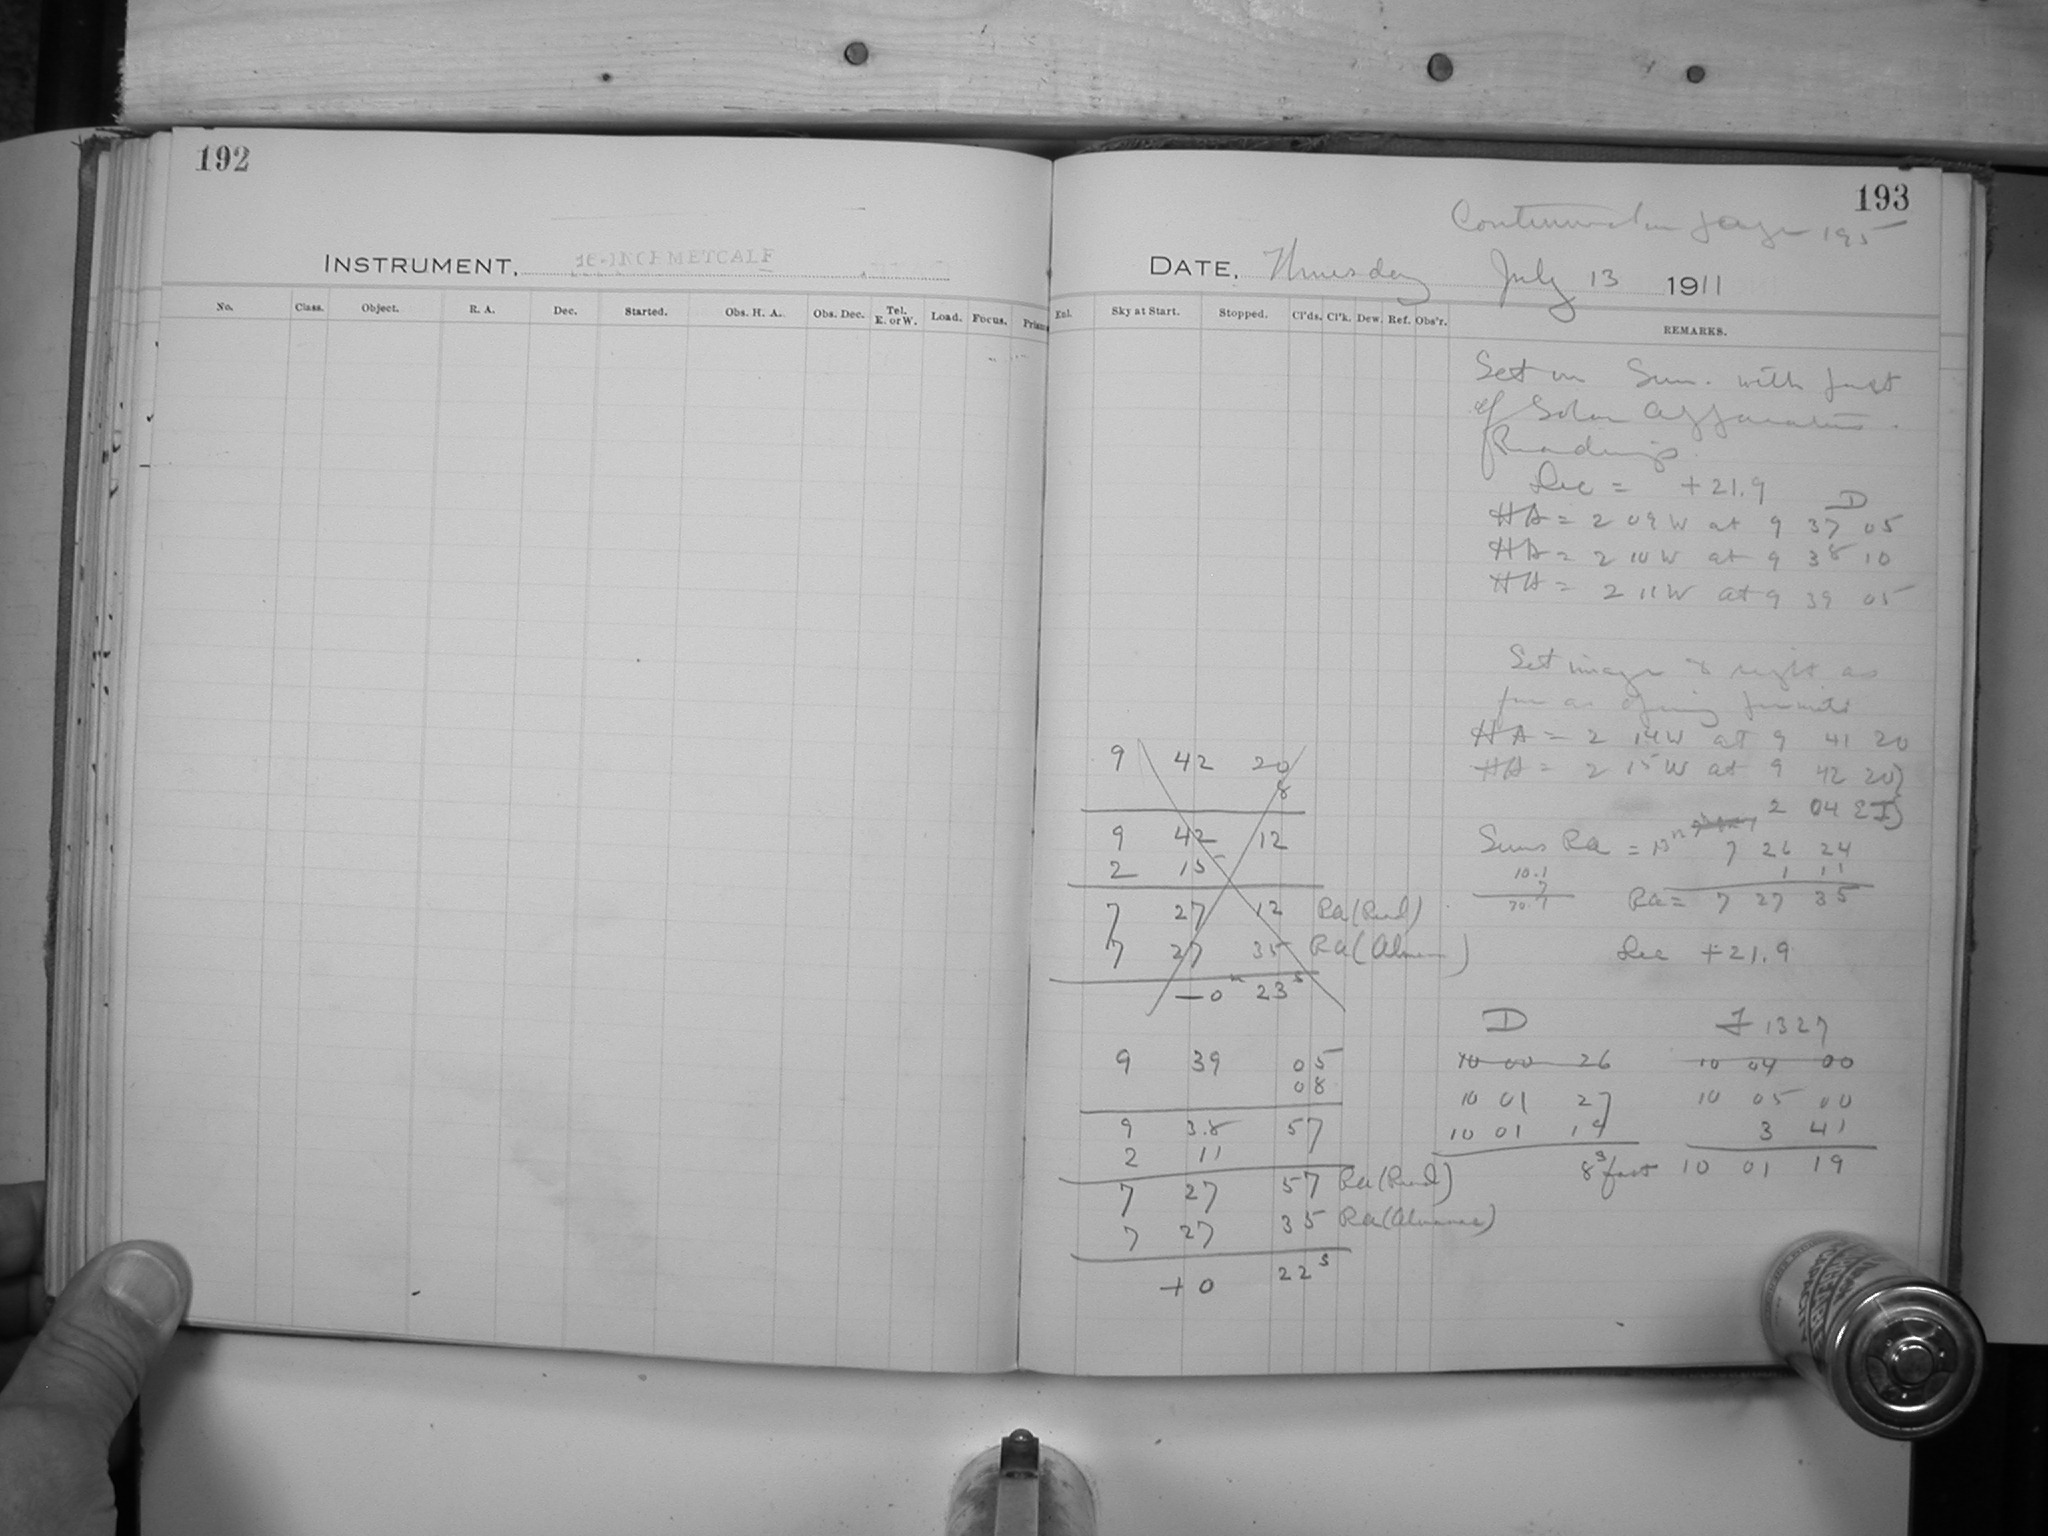 192
INSTRUMENT, 16-INCH METCALF
No. Class. Object. R. A. Dec. Started. Obs. H. A. Obs. Dec. Tel. E. or W. Load. Focus. Prism
193
Continued on page 195
DATE, Thursday July 13 1911
Enl. Sky at Start. Stopped. Cl'ds. Cl'k. Dew. Ref. Obs'r. REMARKS.
Set on Sun. with
of Solar Apparatus.
Readings
Dec = +21.9 D
HA = 2 09 W at 9 37 05
HA = 2 10 W at 9 38 10
HA = 2 11 W at 9 39 05
Set image to right as
far as opening permits
HA = 2 14 W at 9 41 20
HA = 2 15 W at 9 42 20
2 04
Suns Ra = 13 7 26 24
10.1 1 11
7
70.7 Ra = 7 27 35
Dec +21.9
D I 1327
10 00 26 10 04 00
10 01 27 10 05 00
10 01 19 3 41
8s fast 10 01 19
9 42 20
8
9 42 12
2 15
7 27 12 Ra (Read)
7 27 35 Ra (Alman)
-0m 23s
9 39 05
08
9 38 57
2 11
7 27 57 Ra (Read)
7 27 35 Ra (Almanac)
+0 22s